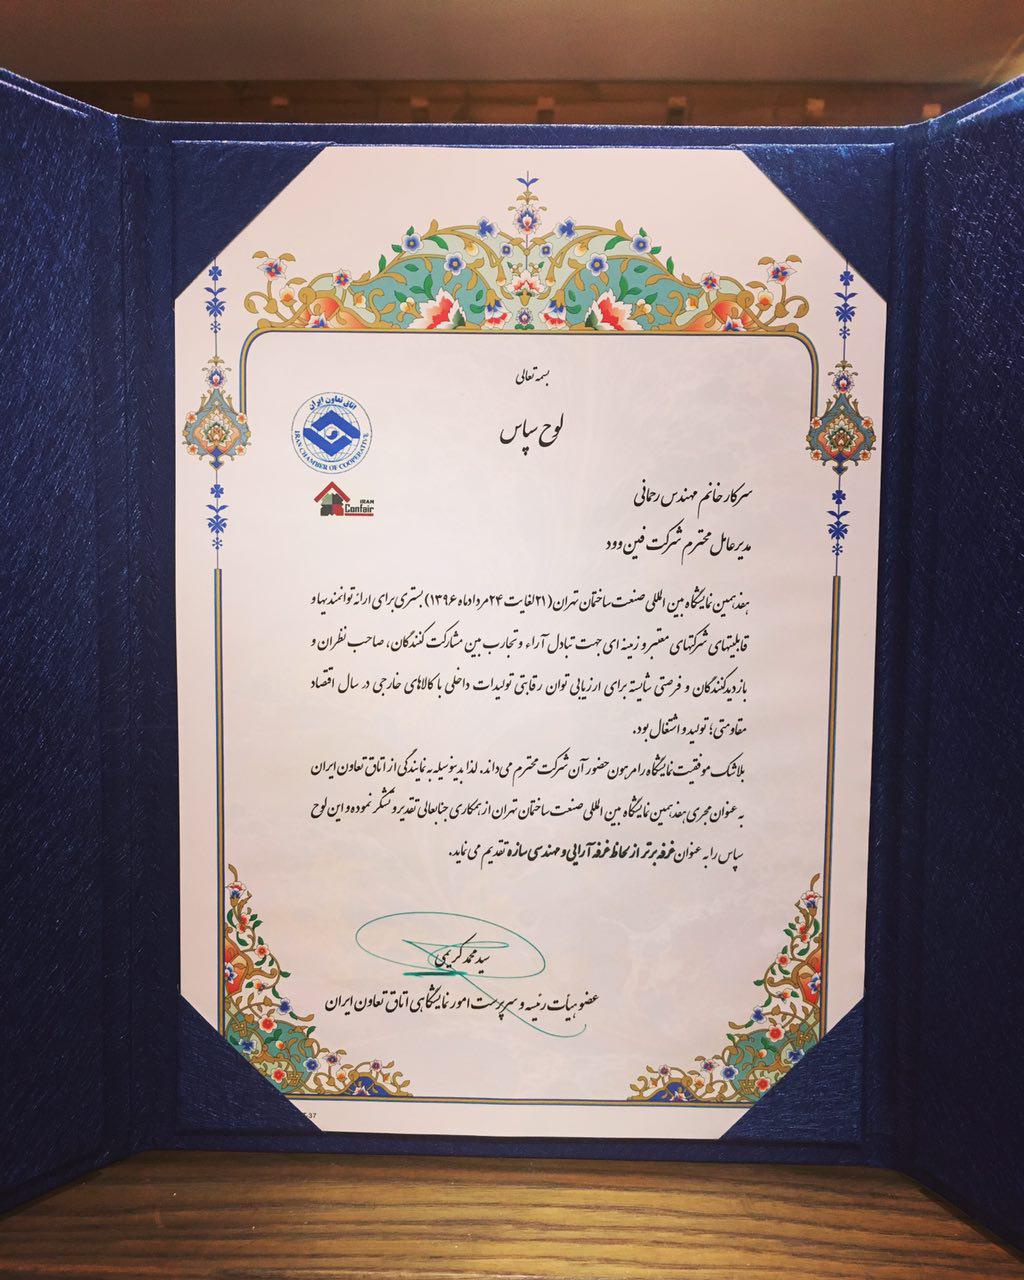 بسمه تعالی
لوح سپاس
اتاق تعاون ایران
IRAN CHAMBER OF COOPERATIVE
IRAN
Confair
سرکار خانم مهندس رحمانی
مدیرعامل محترم شرکت فین وود
هفدهمین نمایشگاه بین المللی صنعت ساختمان تهران (۲۱ لغایت ۲۴ مردادماه ۱۳۹۶) بستری برای ارائه توانمندیها و
قابلیتهای شرکتهای معتبر و زمینه ای جهت تبادل آراء و تجارب بین مشارکت کنندگان، صاحب نظران و
بازدیدکنندگان و فرصتی شایسته برای ارزیابی توان رقابتی تولیدات داخلی با کالاهای خارجی در سال اقتصاد
مقاومتی؛ تولید و اشتغال بود.
بلاشک موفقیت نمایشگاه را مرهون حضور آن شرکت محترم می‌داند. لذا بدینوسیله به نمایندگی از اتاق تعاون ایران
به عنوان مجری هفدهمین نمایشگاه بین المللی صنعت ساختمان تهران از همکاری جنابعالی تقدیر و تشکر نموده و این لوح
سپاس را به عنوان غرفه برتر از لحاظ غرفه آرایی و مهندسی سازه تقدیم می نماید.
سید محمد کریمی
عضو هیأت رئیسه و سرپرست امور نمایشگاهی اتاق تعاون ایران
37